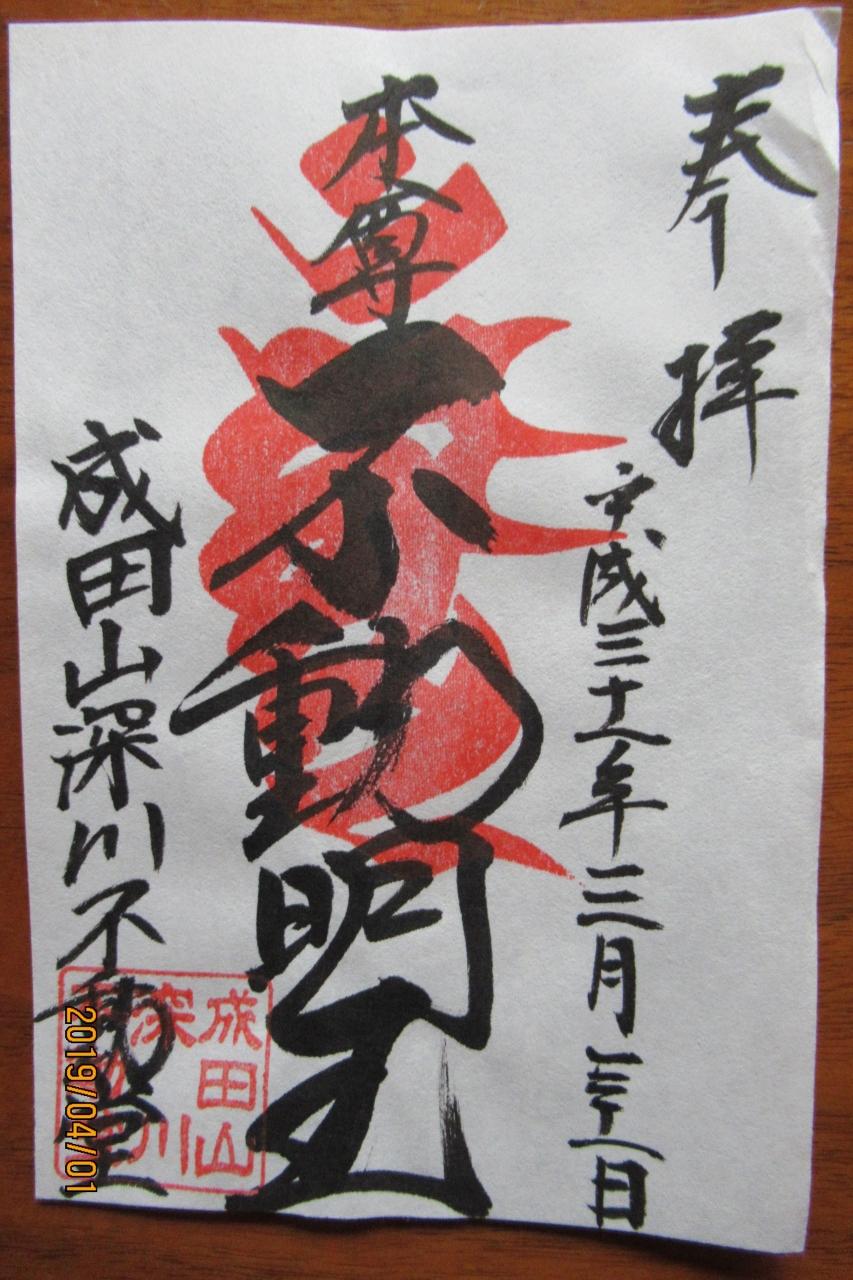 奉拝
平成三十一年三月三十一日
本尊
不動明王
成田山深川不動堂
成田山
深川
2019/04/01